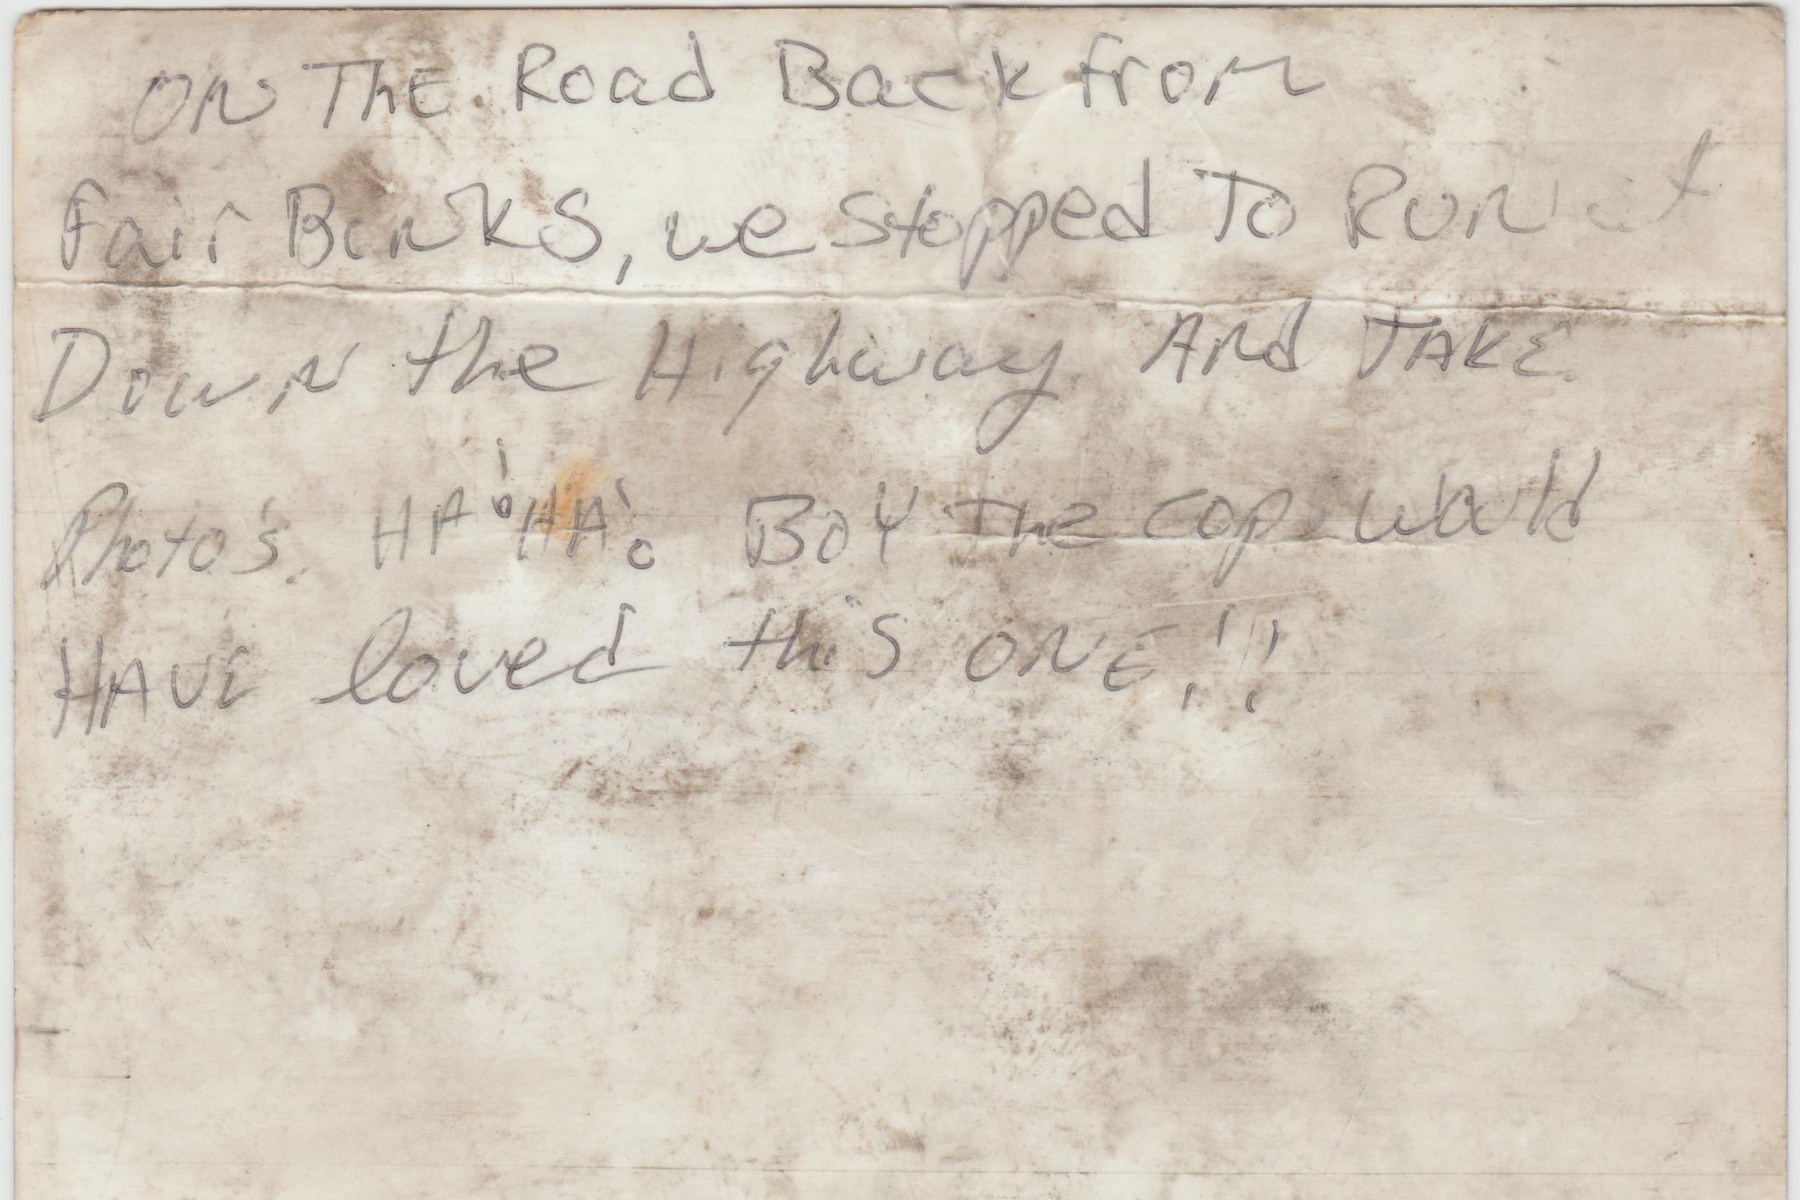 ON ThE Road Back from
Fair Banks, we stopped To Run it
Down the Highway And TAKE
Photo's. HA! HA! BOY The cop would
HAVE loved this ONE!!!